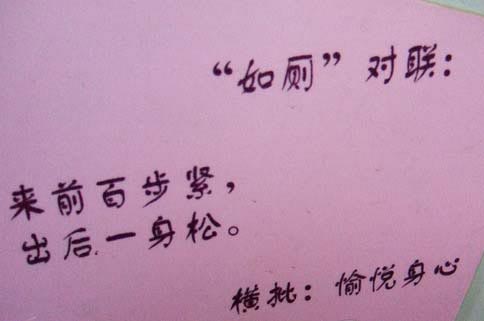 “如厕”对联：
来前百步紧，
出后一身松。
横批：愉悦身心